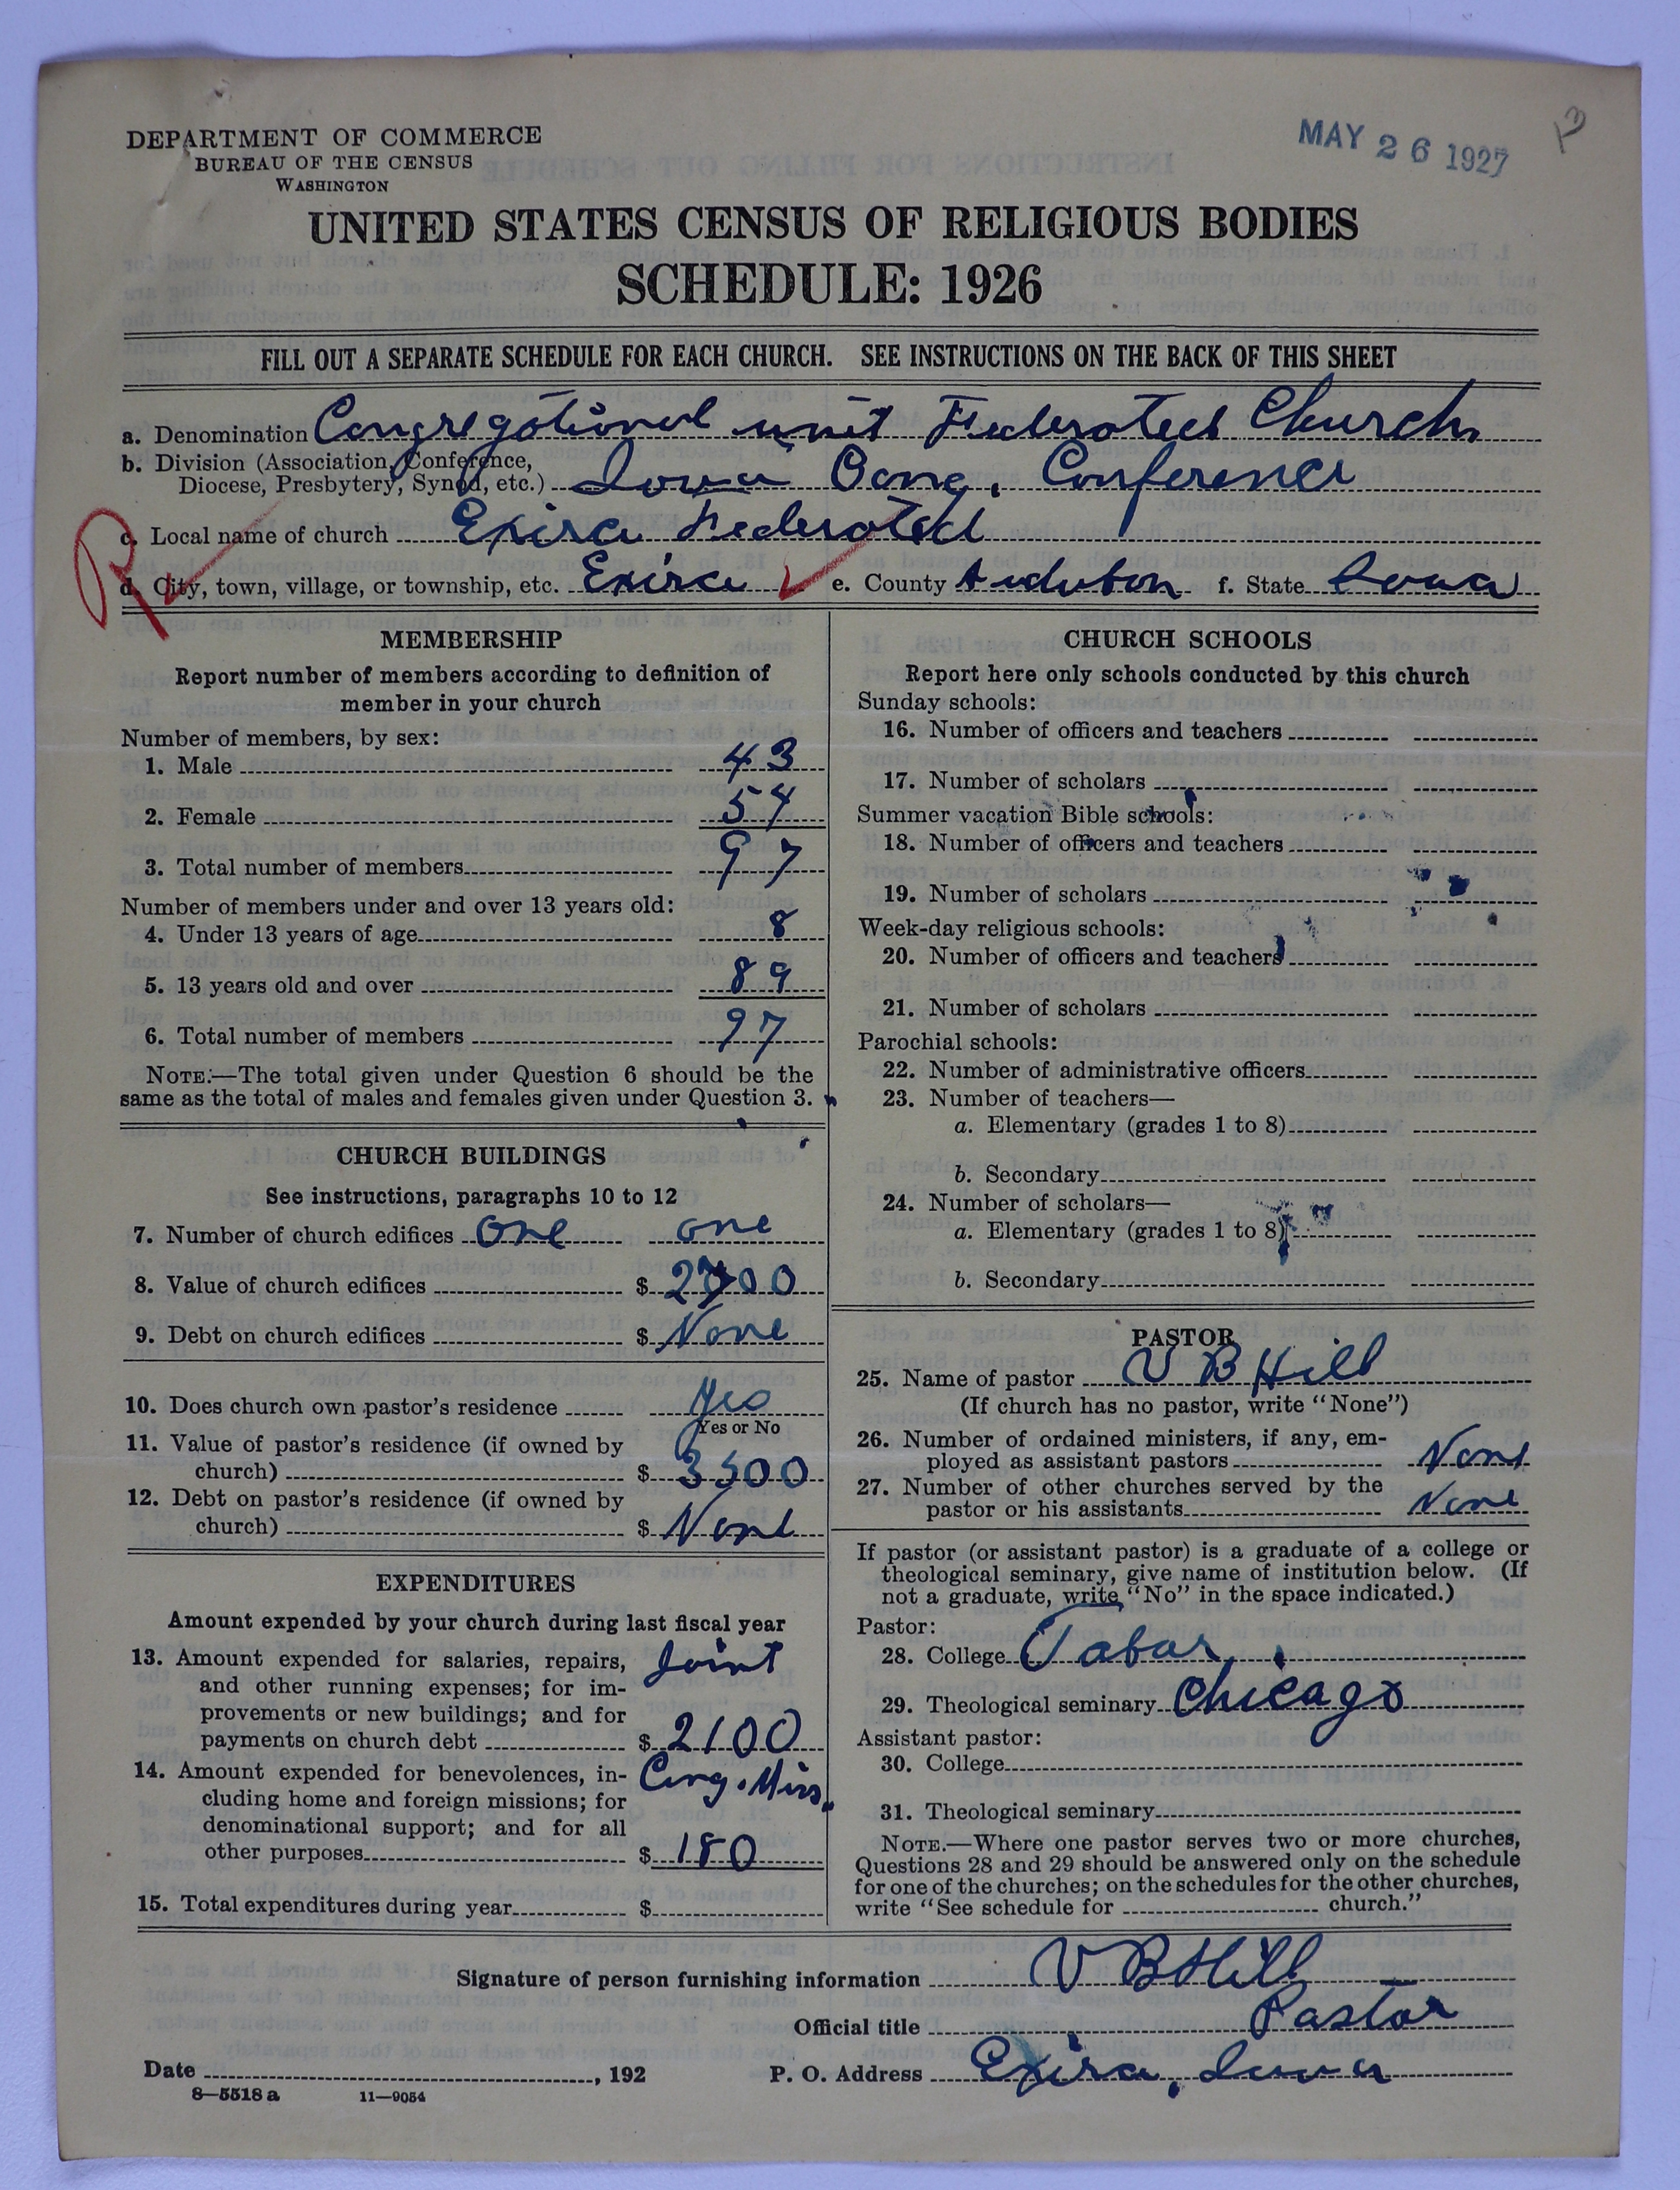 DEPARTMENT OF COMMERCE
BUREAU OF THE CENSUS
WASHINGTON
MAY 26 1927
UNITED STATES CENSUS OF RELIGIOUS BODIES
SCHEDULE: 1926
FILL OUT A SEPARATE SCHEDULE FOR EACH CHURCH. SEE INSTRUCTIONS ON THE BACK OF THIS SHEET
a. Denomination Congregational unit Federated Church
b. Division (Association, Conference,
Diocese, Presbytery, Synod, etc.) Iowa Cong. Conference
c. Local name of church Exira Federated
d. City, town, village, or township, etc. Exira e. County Audubon f. State Iowa
MEMBERSHIP
Report number of members according to definition of
member in your church
Number of members, by sex:
1. Male 43
2. Female 54
3. Total number of members 97
Number of members under and over 13 years old:
4. Under 13 years of age 8
5. 13 years old and over 89
6. Total number of members 97
NOTE.—The total given under Question 6 should be the
same as the total of males and females given under Question 3.
CHURCH BUILDINGS
See instructions, paragraphs 10 to 12
7. Number of church edifices one one
8. Value of church edifices $
9. Debt on church edifices $ None
10. Does church own pastor's residence Yes
Yes or No
11. Value of pastor's residence (if owned by
church) $ 3500
12. Debt on pastor's residence (if owned by
church) $ None
EXPENDITURES
Amount expended by your church during last fiscal year
13. Amount expended for salaries, repairs, Joint
and other running expenses; for im-
provements or new buildings; and for
payments on church debt $ 2100
14. Amount expended for benevolences, in- Cong. Miss.
cluding home and foreign missions; for
denominational support; and for all
other purposes $ 180
15. Total expenditures during year $
CHURCH SCHOOLS
Report here only schools conducted by this church
Sunday schools:
16. Number of officers and teachers
17. Number of scholars
Summer vacation Bible schools:
18. Number of officers and teachers
19. Number of scholars
Week-day religious schools:
20. Number of officers and teachers
21. Number of scholars
Parochial schools:
22. Number of administrative officers
23. Number of teachers—
a. Elementary (grades 1 to 8)
b. Secondary
24. Number of scholars—
a. Elementary (grades 1 to 8)
b. Secondary
PASTOR
25. Name of pastor V B Hill
(If church has no pastor, write "None")
26. Number of ordained ministers, if any, em-
ployed as assistant pastors None
27. Number of other churches served by the
pastor or his assistants None
If pastor (or assistant pastor) is a graduate of a college or
theological seminary, give name of institution below. (If
not a graduate, write "No" in the space indicated.)
Pastor:
28. College Tabor
29. Theological seminary Chicago
Assistant pastor:
30. College
31. Theological seminary
NOTE.—Where one pastor serves two or more churches,
Questions 28 and 29 should be answered only on the schedule
for one of the churches; on the schedules for the other churches,
write "See schedule for church."
Signature of person furnishing information V B Hill
Official title Pastor
Date , 192 P. O. Address Exira, Iowa
8—5518 a 11—9054